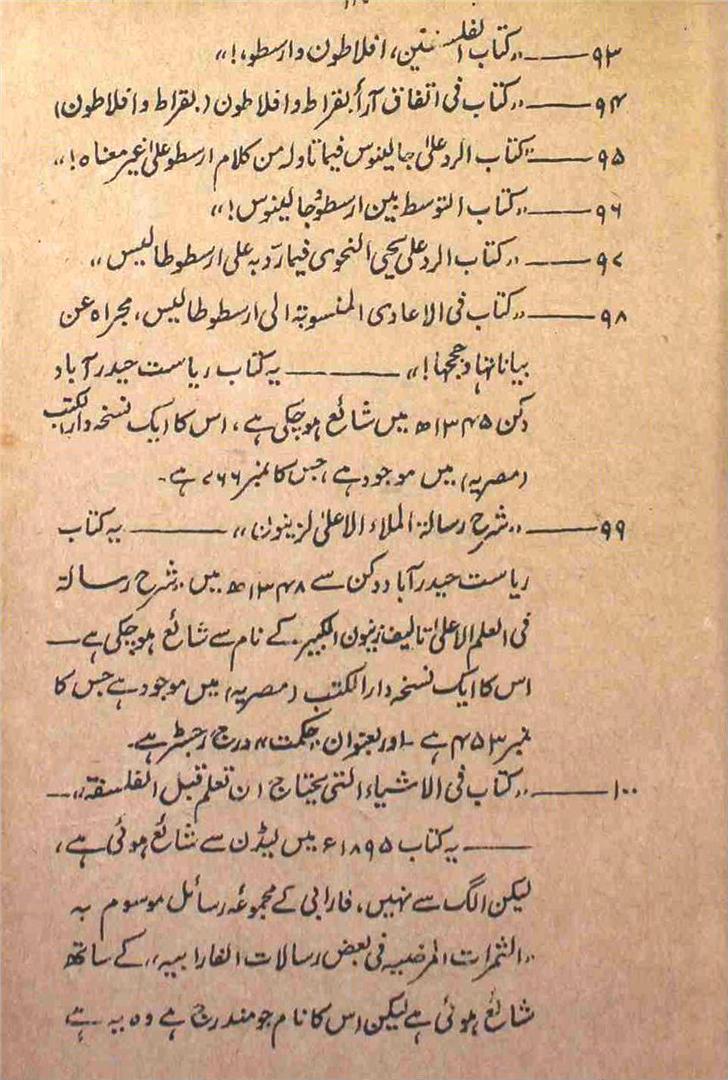 ۹۳ ——— ،،کتاب الفلسفتین، افلاطون وارسطو،!،،
۹۴ ——— ،،کتاب فی اتفاق آرأ بقراط وافلاطون (بقراط وافلاطون)
۹۵ ——— ،،کتاب الرد علیٰ جالینوس فیما تاولہ من کلام ارسطو علیٰ غیر معناہ!،،
۹۶ ——— ،،کتاب التوسط بین ارسطو وجالینوس!،،
۹۷ ——— ،،کتاب الرد علی یحیی النحوی فیما ردبہ علی ارسطوطالیس،،
۹۸ ——— ،،کتاب فی الاعادی المنسوبتہ الی ارسطوطالیس، مجراہ عن
بیاناتہا وحججہا!،، ——— یہ کتاب ریاست حیدرآباد
دکن ۱۳۴۵ھ میں شائع ہوچکی ہے، اس کا ایک نسخہ دارالکتب
(مصریہ) میں موجود ہے، جس کا نمبر ۷۶۶ ہے۔
۹۹ ——— ،،شرح رسالۃ الملاء الاعلیٰ لزینون!،، ——— یہ کتاب
ریاست حیدرآباد دکن سے ۱۳۴۸ھ میں ،شرح رسالۃ
فی العلم الاعلیٰ تالیف زینون الکبیر، کے نام سے شائع ہوچکی ہے —
اس کا ایک نسخہ دارالکتب (مصریہ) میں موجود ہے جس کا
نمبر ۴۵۳ ہے ۔اور بعنوان ،حکمت،، درج رجسٹر ہے۔
۱۰۰ ——— ،،کتاب فی الاشیاء التی یحتاج ان تعلم قبل الفلسفۃ،، —
——— یہ کتاب ۱۸۹۵ء میں لیڈن سے شائع ہوئی ہے،
لیکن الگ سے نہیں، فارابی کے مجموعہ رسائل موسوم بہ
،،الثمرات المرضیہ فی بعض رسالات الفارابیہ،، کے ساتھ
شائع ہوئی ہے لیکن اس کا نام جو مندرج ہے وہ یہ ہے